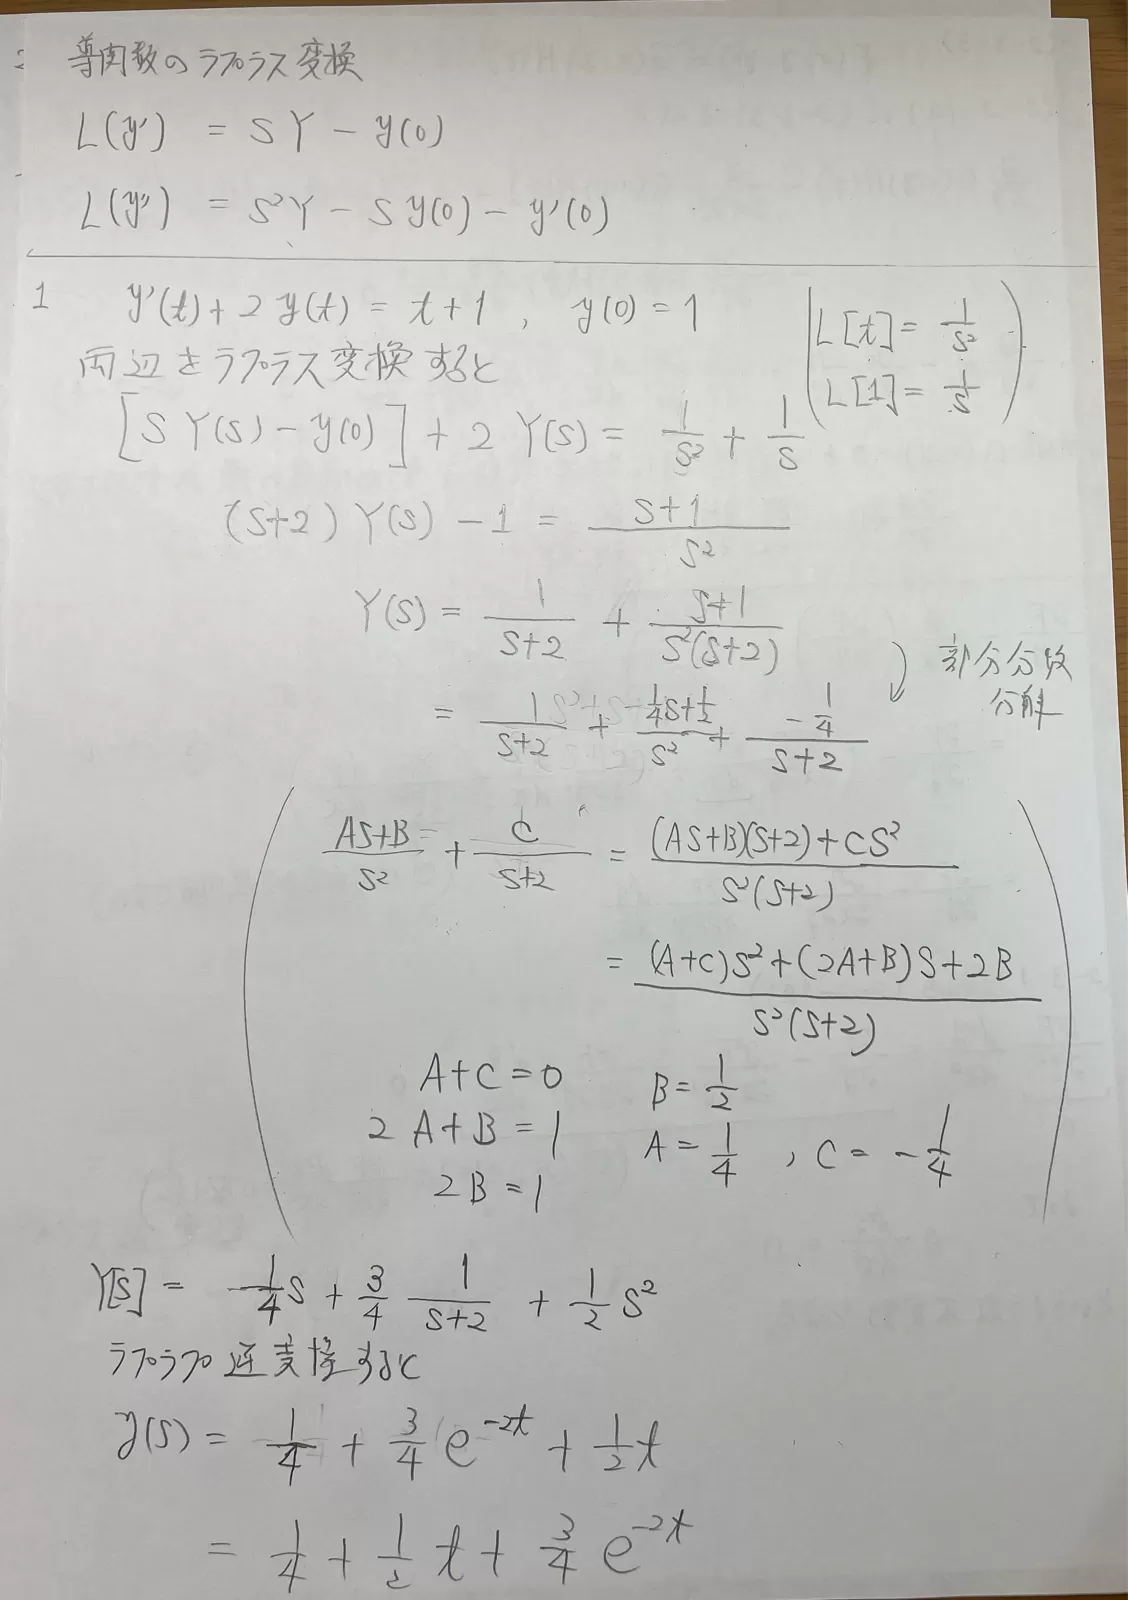 導関数のラプラス変換
L(y') = SY - y(0)
L(y'') = S²Y - Sy(0) - y'(0)
1 y'(t) + 2y(t) = t+1 , y(0) = 1
(L[t] = 1/s²
L[1] = 1/s)
両辺をラプラス変換すると
[S Y(S) - y(0)] + 2 Y(S) = 1/s² + 1/s
(S+2) Y(S) - 1 = (S+1)/S²
Y(S) = 1/(S+2) + (S+1)/(S²(S+2))
部分分数
分解
= 1/(S+2) + (1/4 S + 1/2)/S² + (-1/4)/(S+2)
( (AS+B)/S² + C/(S+2) = ((AS+B)(S+2) + CS²)/(S²(S+2))
= ((A+C)S² + (2A+B)S + 2B)/(S²(S+2))
A+C = 0 B = 1/2
2A+B = 1 A = 1/4 , C = -1/4
2B = 1 )
Y[S] = 1/4S + 3/4 1/(S+2) + 1/2 S²
ラプラプ逆変換すると
y(S) = 1/4 + 3/4 e^{-2t} + 1/2 t
= 1/4 + 1/2 t + 3/4 e^{-2t}